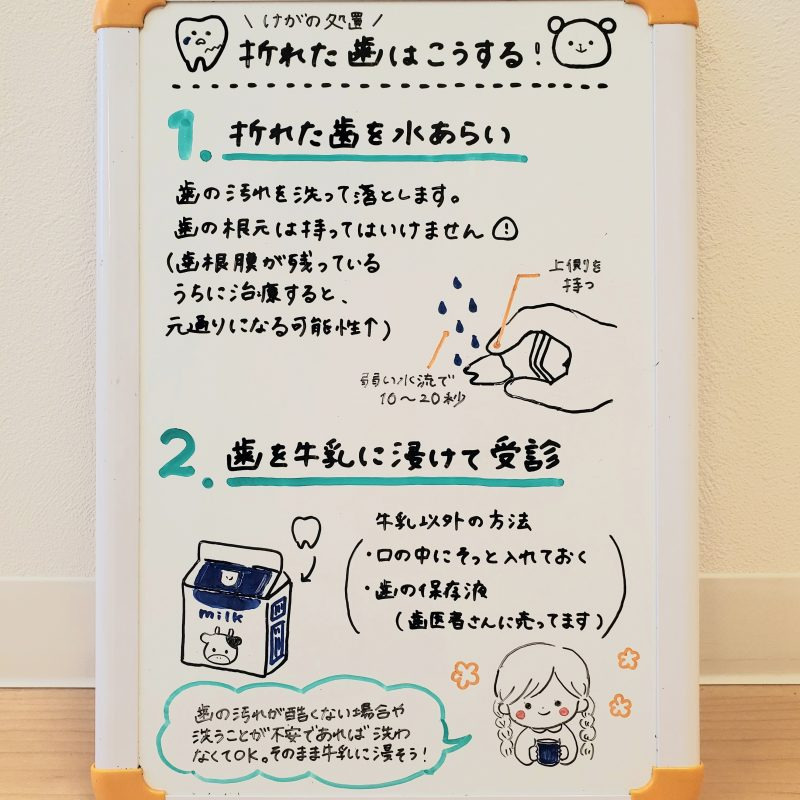 \ けがの処置 /
折れた歯はこうする!
1. 折れた歯を水あらい
歯の汚れを洗って落とします。
歯の根元は持ってはいけません!
(歯根膜が残っている
うちに治療すると、
元通りになる可能性↑)
上側を
持つ
弱い水流で
10〜20秒
2. 歯を牛乳に浸けて受診
牛乳以外の方法
・口の中にそっと入れておく
・歯の保存液
(歯医者さんに売ってます)
milk
歯の汚れが酷くない場合や
洗うことが不安であれば洗わ
なくてOK。そのまま牛乳に浸そう!